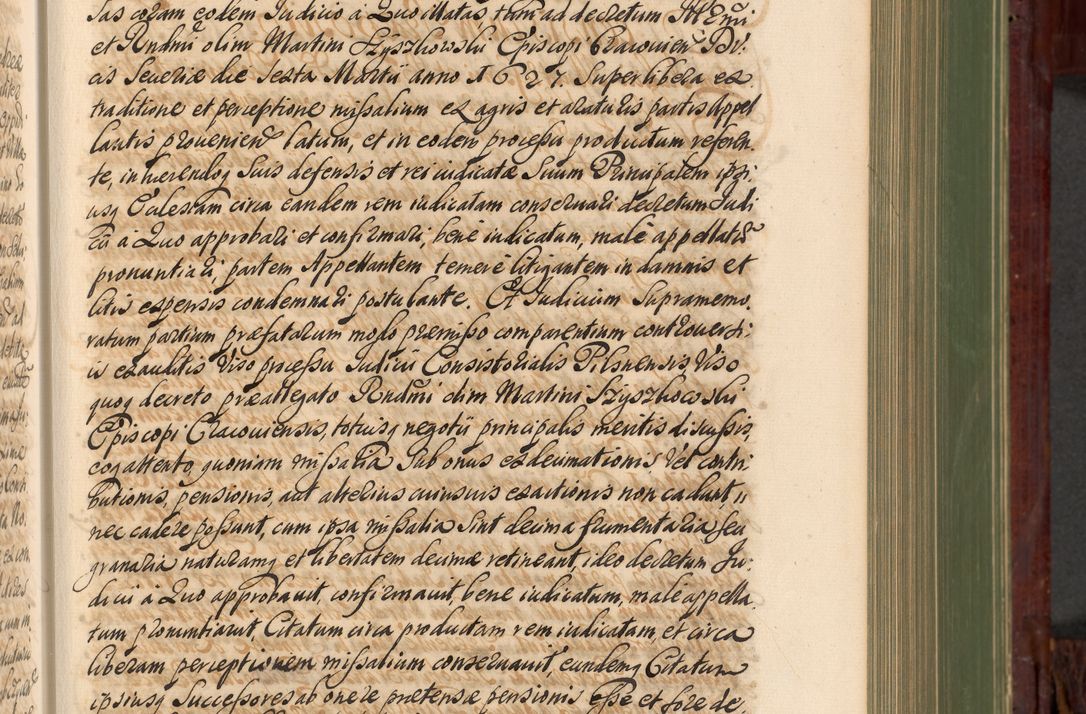 sas coram eodem Iudicio à Quo illatas, tum ad decretum Illmi
et Rndmi olim Martini Szyszkowski Episcopi Cracouien Du:
cis Seueriæ die Sexta Martii anno 1627. Super libera ex
traditione et perceptione missalium ex agris et araturis partis Appel
lantis prouenien latum, et in eodem processu productum referen
te, inhærendoq suis defensis et rei iudicatæ Suum Principalem ipsi
usq Eclesiam circa eandem rem iudicatam conseruari decretum Iudi
cii à Quo approbari et confirmari, bene iudicatum, malè appellatum
pronuntiari, partem Appellantem temerè litigantem in damnis et
litis expensis condemnari postulante. Et Iudicium Supramemo
ratum partium præfatarum modo præmisso comparentium controuersi
is exauditis Viso processu Iudicii Consistorialis Pilsnensis, Viso
quoq decreto præallegato Rndmi olim Martini Szyszkowski
Episcopi Cracouiensis, totiusq negotii principalis meritis discussis,
eoq attento, quoniam missalia sub onus exdecimationis Vel contri
butionis, pensionis aut alterius cuiusuis exactionis non cadunt,
nec cadere possunt, cum ipsa missalia sint decima frumentaria seu
granaria naturamq et libertatem decimæ retineant, ideo decretum Iu:
dicii à Quo approbauit, confirmauit, bene iudicatum, malè appella
tum pronuntiauit, Citatum circa productam rem iudicatam, et circa
liberam perceptionem missalium conseruauit, eundemq Citatum
ipsiusq Successores ab onere prætensæ pensionis esse et fore de,